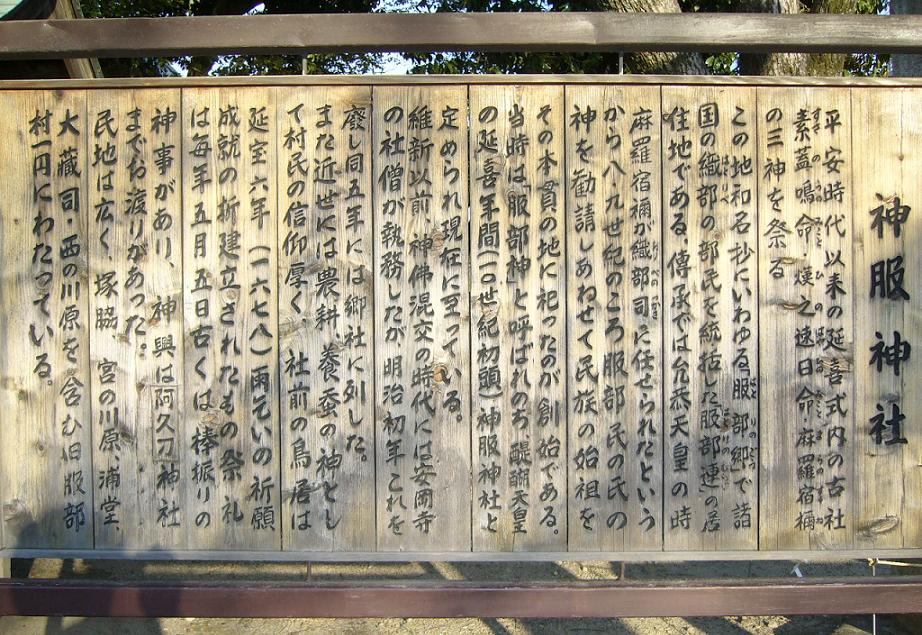 神服神社
平安時代以来の延喜式内の古社
素盞嗚命・熯之速日命・麻羅宿禰
の三神を祭る
この地和名抄にいわゆる「服部郷」で諸
国の織部の部民を統括した「服部連」の居
住地である、傳承では允恭天皇の時
麻羅宿禰が「織部司」に任せられたという
から八・九世紀のころ服部民の氏の
神を勧請しあわせて民族の始祖を
その本貫の地に祀ったのが創始である。
当時は「服部神」と呼ばれのち醍醐天皇
の延喜年間(一〇世紀初頭)神服神社と
定められ現在に至っている。
維新以前、神佛混交の時代には安岡寺
の社僧が執務したが明治初年これを
廃し同五年には郷社に列した。
また近世には農耕・養蚕の神とし
て村民の信仰厚く、社前の鳥居は
延宝六年(一六七八)雨乞いの祈願
成就の折建立されたもの祭礼
は毎年五月五日古くは棒振りの
神事があり、神輿は阿久刀神社
までお渡りがあった。
民地は広く、塚脇 宮の川原、浦堂、
大蔵司・西の川原を含む旧服部
村一円にわたっている。